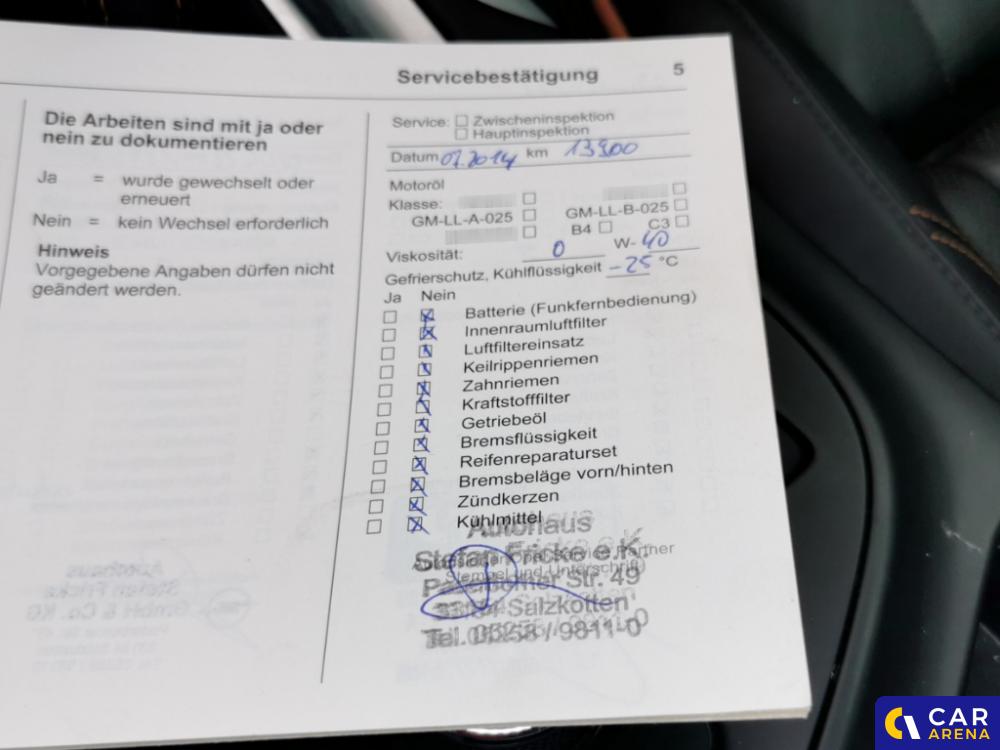 Servicebestätigung 5
Die Arbeiten sind mit ja oder
nein zu dokumentieren
Ja = wurde gewechselt oder
erneuert
Nein = kein Wechsel erforderlich
Hinweis
Vorgegebene Angaben dürfen nicht
geändert werden.
Service: Zwischeninspektion
Hauptinspektion
Datum 07.2014 km 13900
Motoröl
Klasse:
GM-LL-A-025 GM-LL-B-025
B4 C3
Viskosität: 0 W- 40
Gefrierschutz, Kühlflüssigkeit -25 °C
Ja Nein
Batterie (Funkfernbedienung)
Innenraumluftfilter
Luftfiltereinsatz
Keilrippenriemen
Zahnriemen
Kraftstofffilter
Getriebeöl
Bremsflüssigkeit
Reifenreparaturset
Bremsbeläge vorn/hinten
Zündkerzen
Kühlmittel
Autohaus
Stefan Fricke e.K.
Partner
Stempel und Unterschrift)
Paderborner Str. 49
33154 Salzkotten
Tel. 05258 / 9811-0
CAR
ARENA